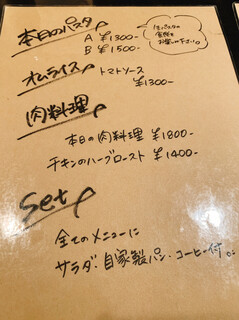 本日のパスタ
A ¥1300-
B ¥1500-
オムライス トマトソース
¥1300-
肉料理
本日の肉料理 ¥1800-
チキンのハーブロースト ¥1400-
Set
全てのメニューに
サラダ・自家製パン・コーヒー付